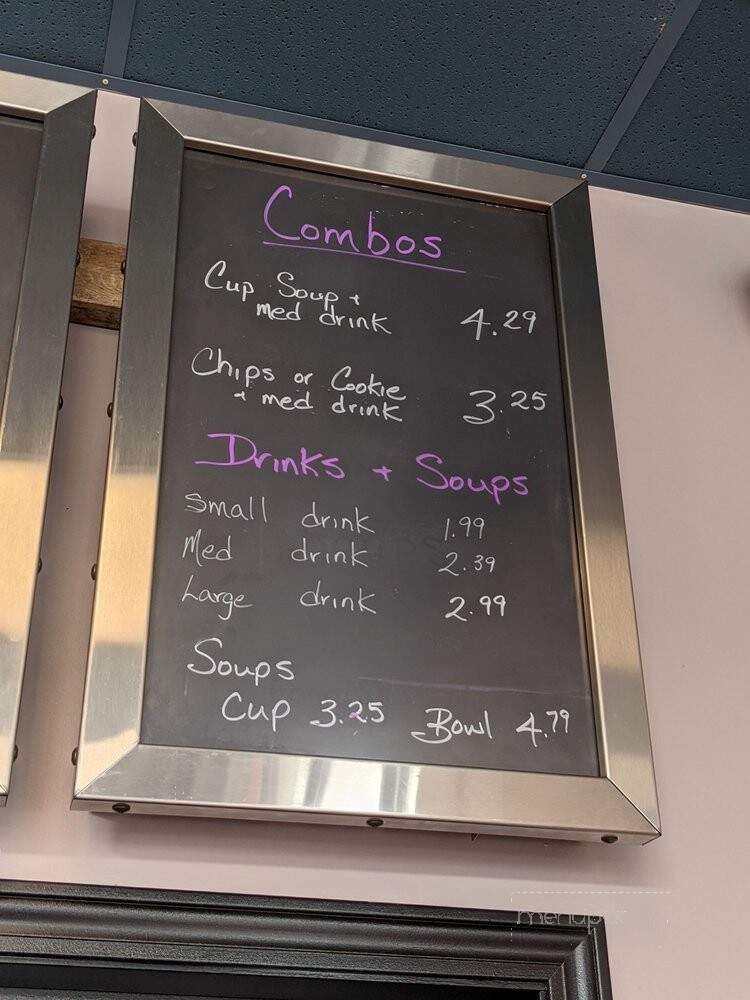 Combos
Cup Soup +
med drink 4.29
Chips or Cookie
+ med drink 3.25
Drinks + Soups
Small drink 1.99
Med drink 2.39
Large drink 2.99
Soups
Cup 3.25 Bowl 4.79
menup